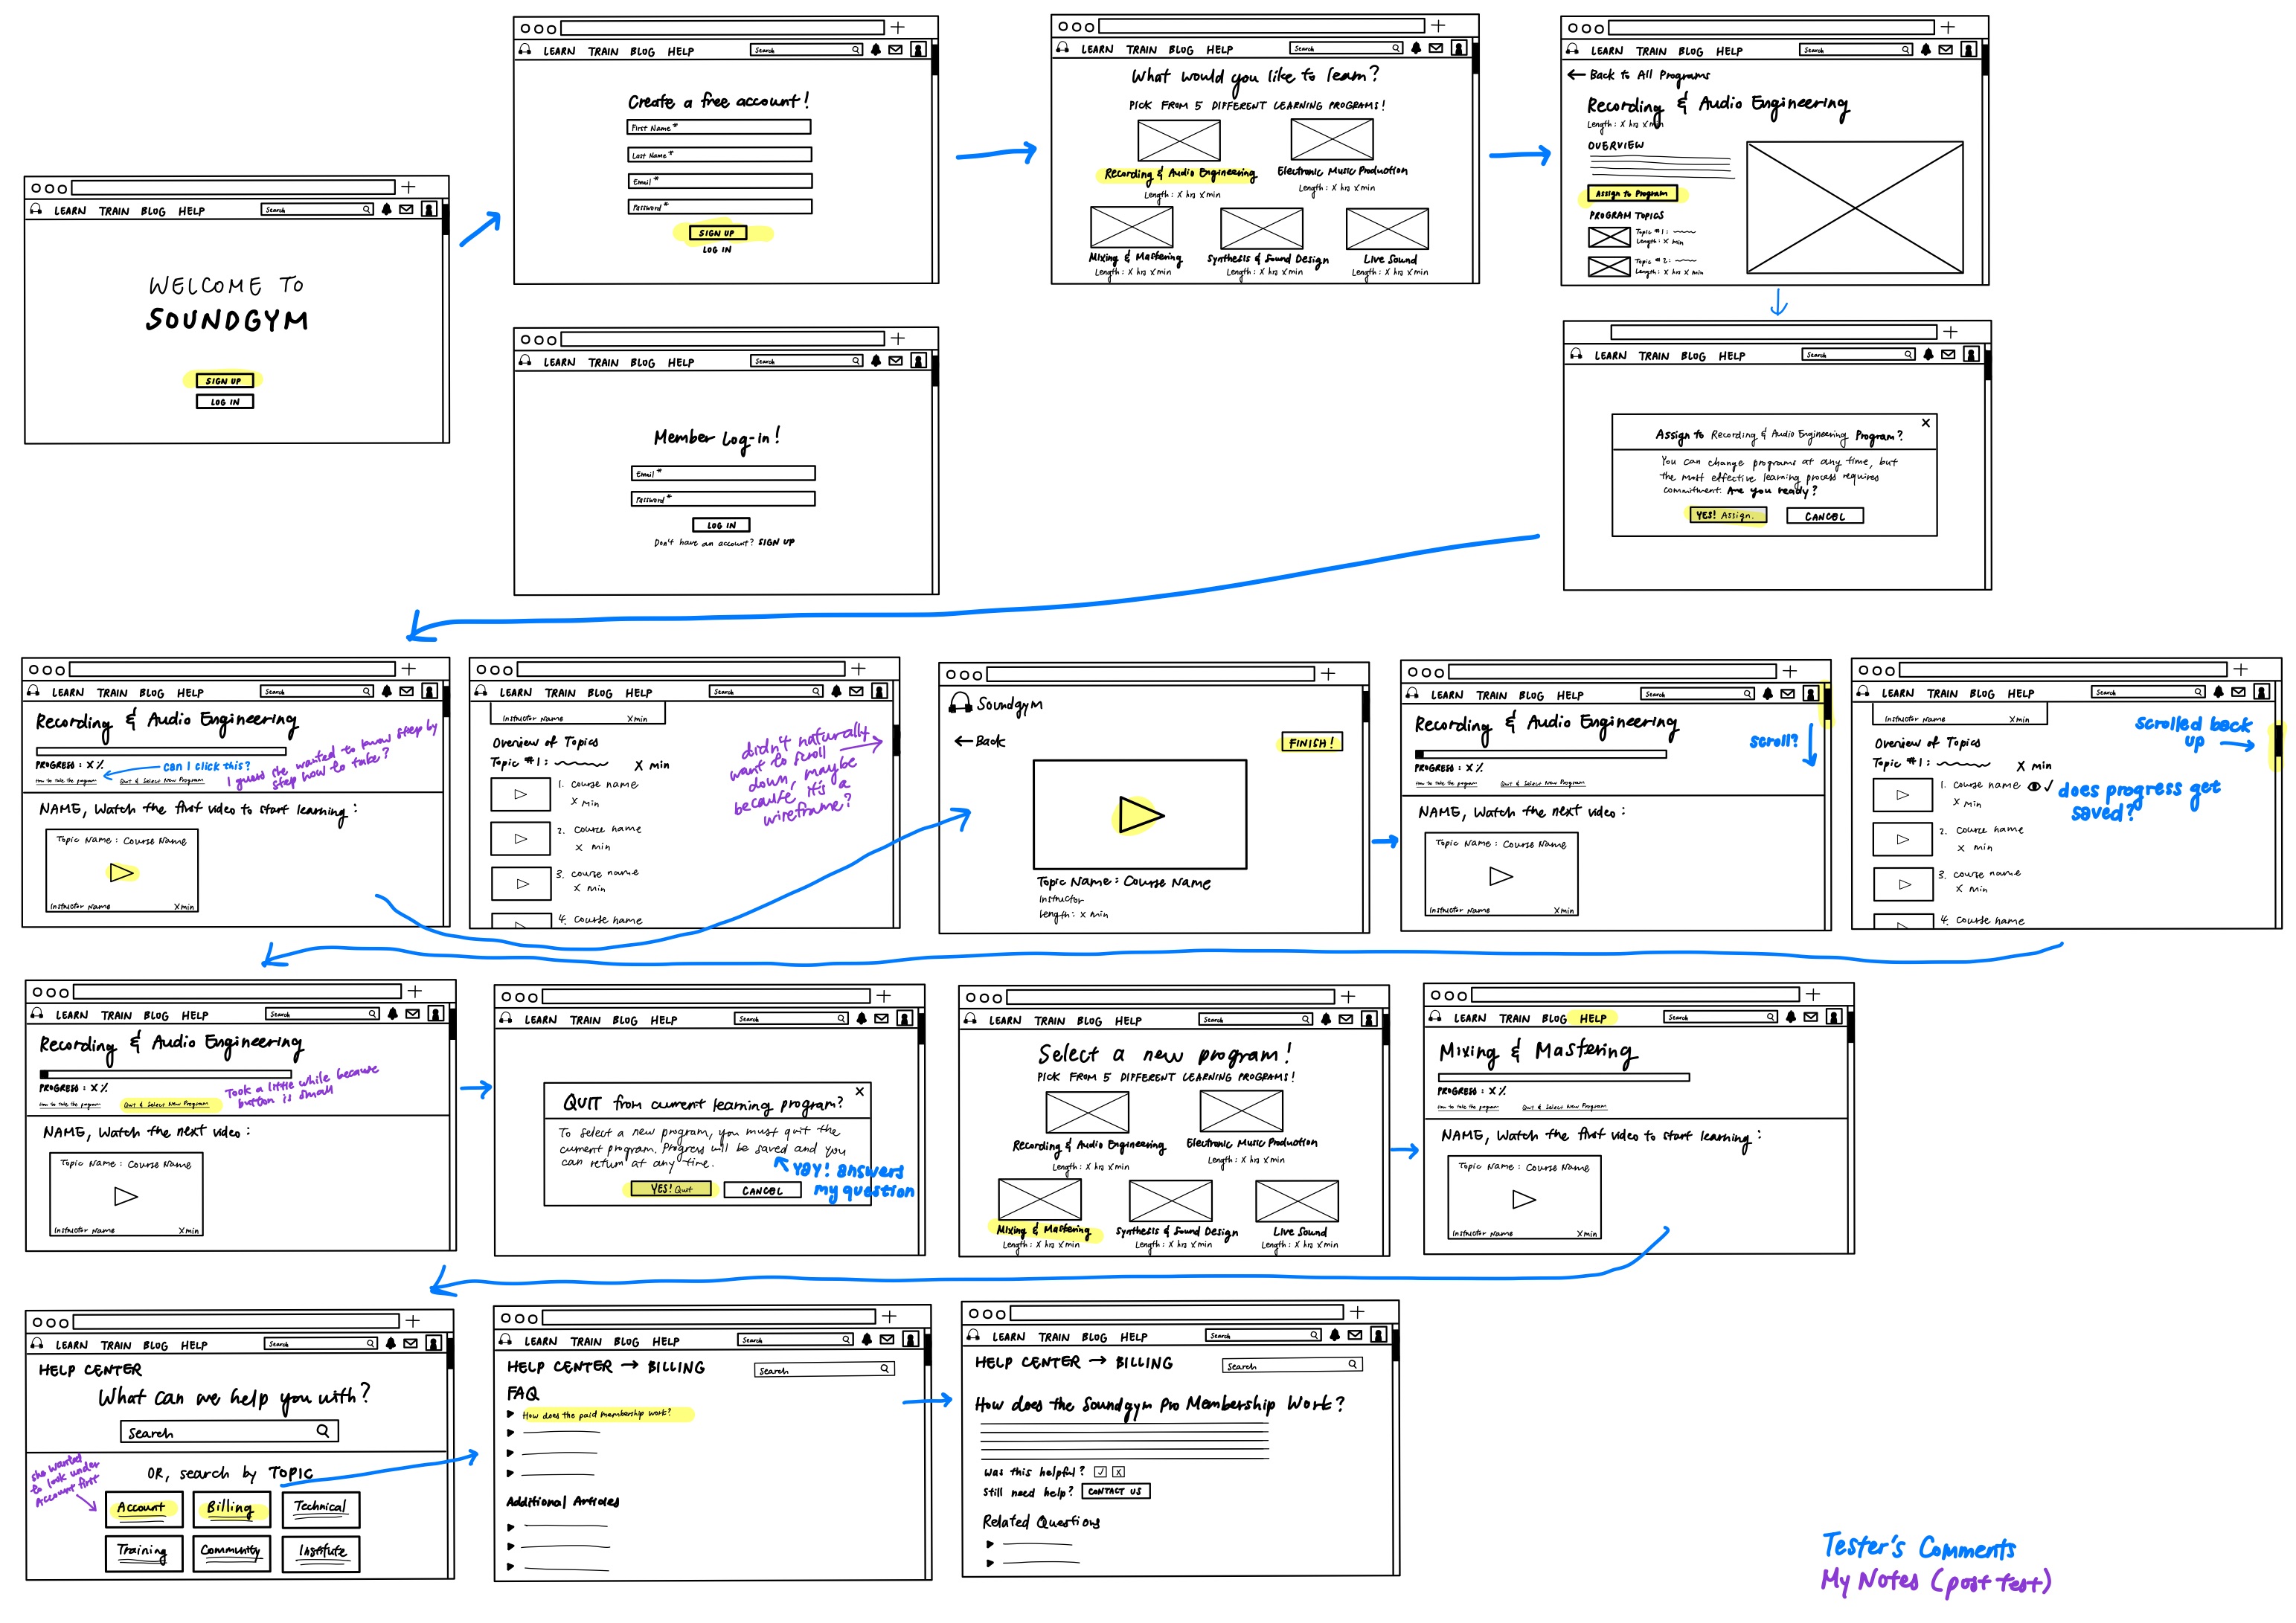 LEARN TRAIN BLOG HELP Search
WELCOME TO
SOUNDGYM
SIGN UP
LOG IN
LEARN TRAIN BLOG HELP Search
Create a free account!
First Name *
Last Name *
Email *
Password *
SIGN UP
LOG IN
LEARN TRAIN BLOG HELP Search
Member Log-in!
Email *
Password *
LOG IN
Don't have an account? SIGN UP
LEARN TRAIN BLOG HELP Search
What would you like to learn?
PICK FROM 5 DIFFERENT LEARNING PROGRAMS!
Recording & Audio Engineering
Length: X hrs X min
Electronic Music Production
Length: X hrs X min
Mixing & Mastering
Length: X hrs X min
Synthesis & Sound Design
Length: X hrs X min
Live Sound
Length: X hrs X min
LEARN TRAIN BLOG HELP Search
← Back to All Programs
Recording & Audio Engineering
Length: X hrs X min
OVERVIEW
Assign to Program
PROGRAM TOPICS
Topic #1:
Length: X min
Topic #2:
Length: X hrs X min
LEARN TRAIN BLOG HELP Search
Assign to Recording & Audio Engineering Program?
You can change programs at any time, but
the most effective learning process requires
commitment. Are you ready?
YES! Assign.
CANCEL
LEARN TRAIN BLOG HELP Search
Recording & Audio Engineering
PROGRESS: X %
How to take the program
Quit & Select New Program
can I click this?
I guess she wanted to know step by
step how to take?
NAME, Watch the first video to start learning:
Topic Name: Course Name
Instructor Name X min
LEARN TRAIN BLOG HELP Search
Instructor Name X min
Overview of Topics
Topic #1: X min
1. Course name
X min
2. Course name
X min
3. Course name
X min
4. Course name
didn't naturally
want to scroll
down, maybe
because it's a
wireframe?
Soundgym
← Back
FINISH!
Topic Name: Course Name
Instructor
Length: X min
LEARN TRAIN BLOG HELP Search
Recording & Audio Engineering
PROGRESS: X %
How to take the program
Quit & Select New Program
scroll?
NAME, Watch the next video:
Topic Name: Course Name
Instructor Name X min
LEARN TRAIN BLOG HELP Search
Instructor Name X min
Scrolled back
up
Overview of Topics
Topic #1: X min
1. Course name
X min
does progress get
saved?
2. Course name
X min
3. Course name
X min
4. Course name
LEARN TRAIN BLOG HELP Search
Recording & Audio Engineering
PROGRESS: X %
How to take the program
Quit & Select New Program
Took a little while because
button is small
NAME, Watch the next video:
Topic Name: Course Name
Instructor Name X min
LEARN TRAIN BLOG HELP Search
QUIT from current learning program?
To select a new program, you must quit the
current program. Progress will be saved and you
can return at any time.
YAY! answers
my question
YES! Quit
CANCEL
LEARN TRAIN BLOG HELP Search
Select a new program!
PICK FROM 5 DIFFERENT LEARNING PROGRAMS!
Recording & Audio Engineering
Length: X hrs X min
Electronic Music Production
Length: X hrs X min
Mixing & Mastering
Length: X hrs X min
Synthesis & Sound Design
Length: X hrs X min
Live Sound
Length: X hrs X min
LEARN TRAIN BLOG HELP Search
Mixing & Mastering
PROGRESS: X %
How to take the program
Quit & Select New Program
NAME, Watch the first video to start learning:
Topic Name: Course Name
Instructor Name X min
LEARN TRAIN BLOG HELP Search
HELP CENTER
What can we help you with?
Search
OR, search by TOPIC
she wanted
to look under
Account first
Account
Billing
Technical
Training
Community
Institute
LEARN TRAIN BLOG HELP Search
HELP CENTER → BILLING
Search
FAQ
How does the paid membership work?
Additional Articles
LEARN TRAIN BLOG HELP Search
HELP CENTER → BILLING
Search
How does the Soundgym Pro Membership Work?
Was this helpful?
Still need help? CONTACT US
Related Questions
Tester's Comments
My Notes (post test)